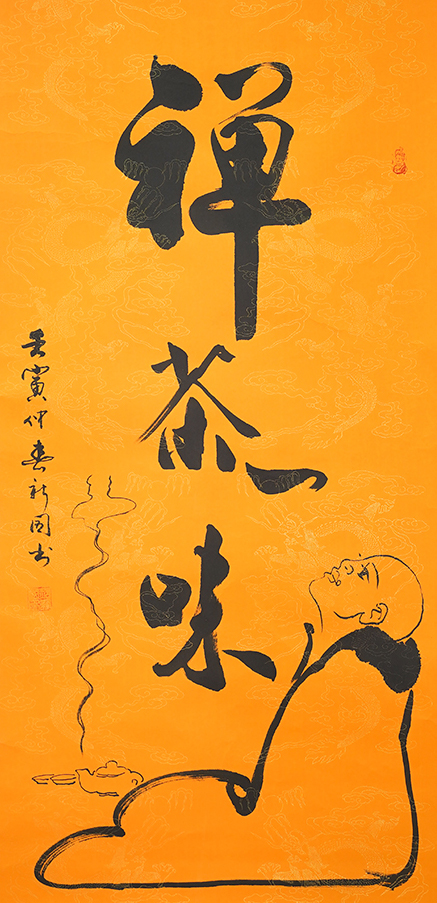 禅茶一味
壬寅仲春新国书